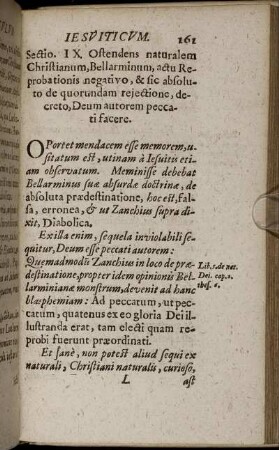 IESVITICVM. 161
Sectio. IX. Ostendens naturalem
Christianum, Bellarminum, actu Re
probationis negativo, & sic absolu-
to de quorundam rejectione, de-
creto, Deum autorem pecca-
ti facere.
OPortet mendacem esse memorem, u-
sitatum est, utinam à Iesuitis eti-
am observatum. Meminisse debebat
Bellarminus suæ absurdæ doctrinæ, de
absoluta prædestinatione, hoc est, Fal-
sa, erronea, & ut Zanchius supra di-
xit, Diabolica.
Ex illa enim, sequela inviolabili se-
quitur, Deum esse peccati autorem:
Quemadmodũ Zanchius in loco de præ-
destinatione, propter idem opinionis Bel-
larminianæ monstrum, devenit ad hanc
blasphemiam: Ad peccatum, ut pec-
catum, quatenus ex eo gloria Dei il-
lustranda erat, tam electi quam re-
probi fuerunt præordinati.
Lib. 5. de nat.
Dei. cap. 2.
thes. 6.
Et sanè, non potest aliud sequi ex
naturali, Christiani naturalis, curioso,
L ast